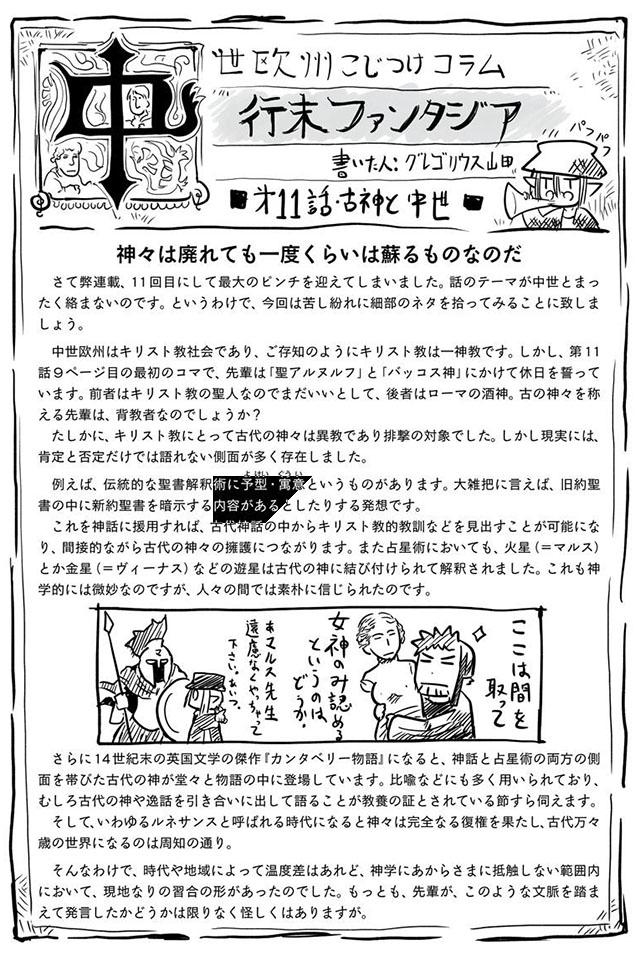 中世欧州こじつけコラム
行末ファンタジア
書いた人:グレゴリウス山田
パフパフ
■才11話・古神と中世■
神々は廃れても一度くらいは蘇るものなのだ
さて弊連載、11回目にして最大のピンチを迎えてしまいました。話のテーマが中世とまっ
たく絡まないのです。というわけで、今回は苦し紛れに細部のネタを拾ってみることに致しま
しょう。
中世欧州はキリスト教社会であり、ご存知のようにキリスト教は一神教です。しかし、第11
話9ページ目の最初のコマで、先輩は「聖アルヌルフ」と「バッコス神」にかけて休日を誓って
います。前者はキリスト教の聖人なのでまだいいとして、後者はローマの酒神。古の神々を称
える先輩は、背教者なのでしょうか？
たしかに、キリスト教にとって古代の神々は異教であり排撃の対象でした。しかし現実には、
肯定と否定だけでは語れない側面が多く存在しました。
例えば、伝統的な聖書解釈術に予型・寓意というものがあります。大雑把に言えば、旧約聖
よけい ぐうい
書の中に新約聖書を暗示する内容があるとしたりする発想です。
これを神話に援用すれば、古代神話の中からキリスト教的教訓などを見出すことが可能にな
り、間接的ながら古代の神々の擁護につながります。また占星術においても、火星（＝マルス）
とか金星（＝ヴィーナス）などの遊星は古代の神々に結び付けられて解釈されました。これも神
学的には微妙なのですが、人々の間では素朴に信じられたのです。
ここは間を
取って
女神のみ認める
というのは
どうか。
あマルス先生
遠慮なくやっちゃって
下さい。あいつ。
さらに14世紀末の英国文学の傑作『カンタベリー物語』になると、神話と占星術の両方の側
面を帯びた古代の神々が堂々と物語の中に登場しています。比喩などにも多く用いられており、
むしろ古代の神々や逸話を引き合いに出して語ることが教養の証とされている節すら伺えます。
そして、いわゆるルネサンスと呼ばれる時代になると神々は完全なる復権を果たし、古代万々
歳の世界になるのは周知の通り。
そんなわけで、時代や地域によって温度差はあれど、神学にあからさまに抵触しない範囲内
において、現地なりの習合の形があったのでした。もっとも、先輩が、このような文脈を踏ま
えて発言したかどうかは限りなく怪しくはありますが。